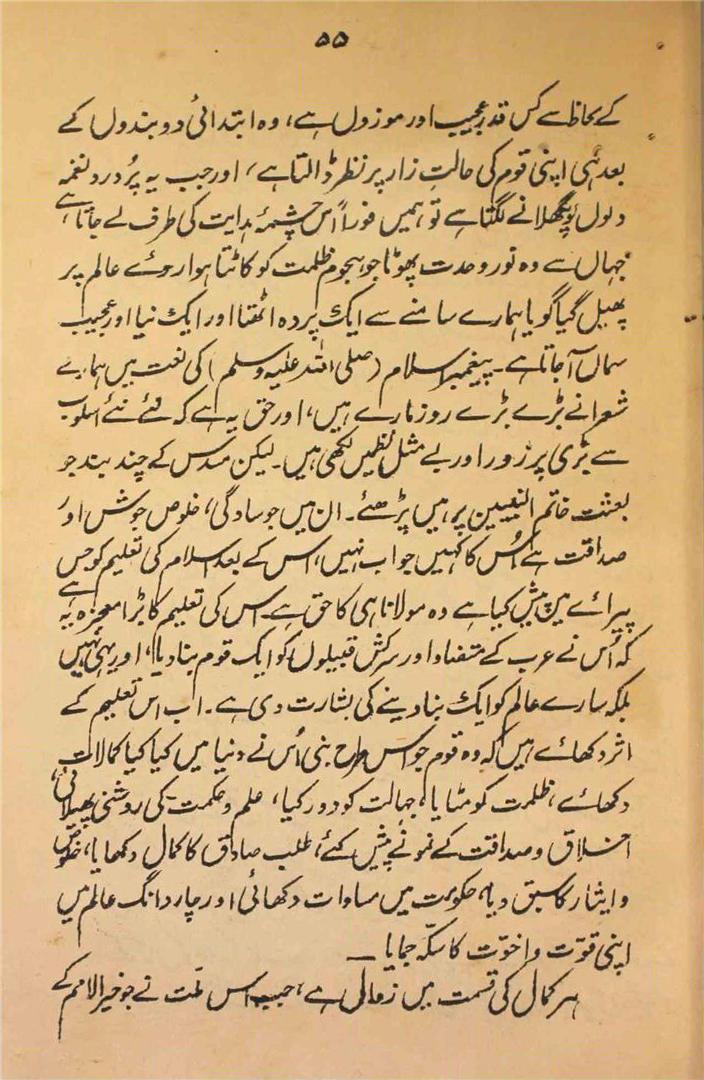 ۵۵
کے لحاظ سے کس قدر عجیب اور موزوں ہے، وہ ابتدائی دو بندوں کے
بعد ہی اپنی قوم کی حالتِ زار پر نظر ڈالتا ہے، اور جب یہ پُر درد نغمہ
دلوں کو پگھلانے لگتا ہے تو ہمیں فوراً اُس چشمۂ ہدایت کی طرف لے جاتا ہے
جہاں سے وہ نورِ وحدت پھوٹا جو ہجومِ ظلمت کو کاٹتا ہوا روئے عالم پر
پھیل گیا گویا ہمارے سامنے سے ایک پردہ اٹھتا اور ایک نیا اور عجیب
سماں آجاتا ہے۔ پیغمبرِ اسلام (صلی اللہ علیہ وسلم) کی نعت میں ہمارے
شعرا نے بڑے بڑے زور مارے ہیں، اور حق یہ ہے کہ نئے نئے اسلوب
سے بڑی پرزور اور بے مثل نظمیں لکھی ہیں۔ لیکن مسدس کے چند بند جو
بعثت خاتم النبیین پر ہیں پڑھئے۔ ان میں جو سادگی، خلوص جوش اور
صداقت ہے اُس کا کہیں جواب نہیں، اس کے بعد اسلام کی تعلیم کو جس
پیرائے میں پیش کیا ہے وہ مولانا ہی کا حق ہے۔ اس کی تعلیم کا بڑا معجزہ یہ ہے
کہ اُس نے عرب کے متضاد اور سرکش قبیلوں کو ایک قوم بنا دیا، اور یہی نہیں
بلکہ سارے عالم کو ایک بنا دینے کی بشارت دی ہے۔ اب اس تعلیم کے
اثر دکھائے ہیں کہ وہ قوم جو اس طرح بنی اُس نے دنیا میں کیا کیا کمالات
دکھائے، ظلمت کو مٹایا، جہالت کو دور کیا، علم و حکمت کی روشنی پھیلائی،
اخلاق و صداقت کے نمونے پیش کئے، طلب صادق کا کمال دکھایا، خلوص
و ایثار کا سبق دیا، حکومت میں مساوات دکھائی اور چار دانگ عالم میں
اپنی قوّت و اخوّت کا سکّہ جمایا۔
ہر کمال کی قسمت میں زوال ہے، جب اس ملّت نے جو خیر الامم کے